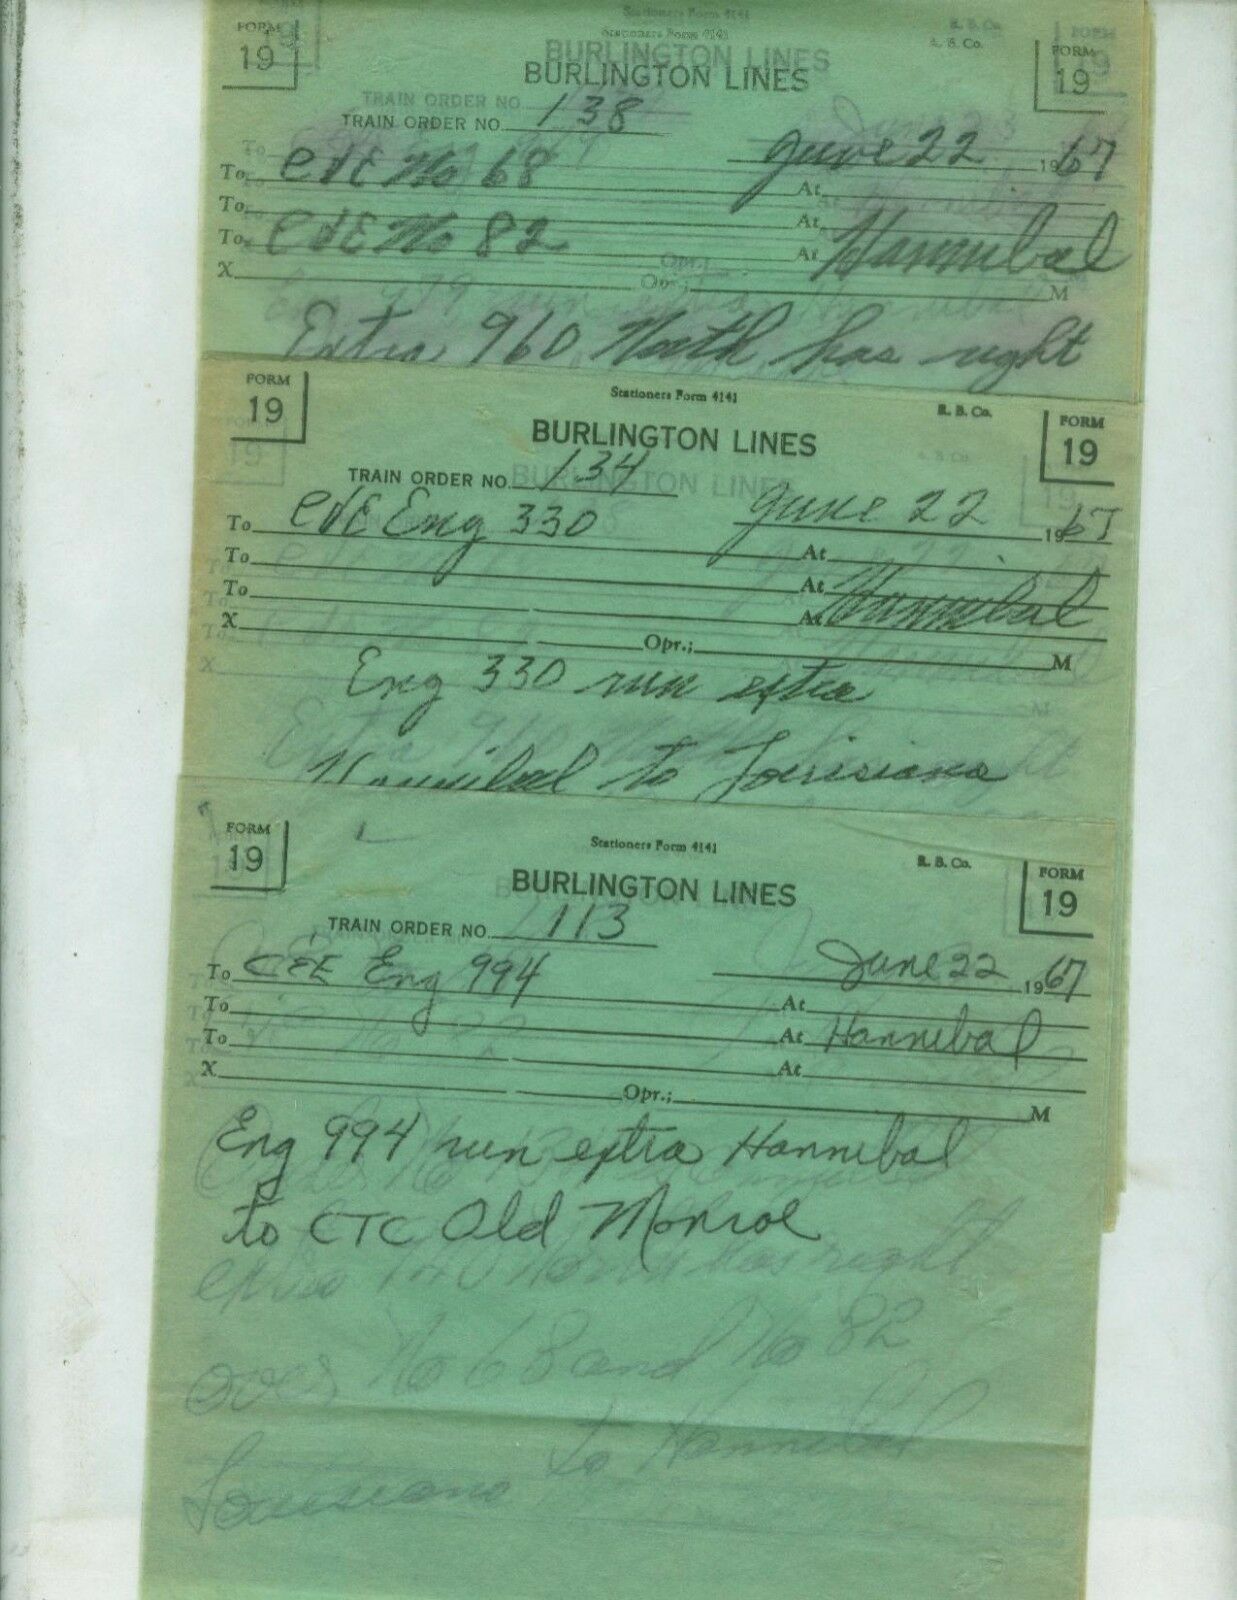 Stationers Form 4141
R. B. Co.
FORM
19
BURLINGTON LINES
FORM
19
TRAIN ORDER NO. 138
June 22 1967
To C&E No 68 At
To At
To C&E No 82 At Hannibal
X Opr.; M
Extra 960 North has right
FORM
19
Stationers Form 4141
R. B. Co.
BURLINGTON LINES
FORM
19
TRAIN ORDER NO. 134
June 22 1967
To C&E Eng 330
To At
To At
X At Hannibal
Opr.; M
Eng 330 run extra
Hannibal to Louisiana
FORM
19
Stationers Form 4141
R. B. Co.
BURLINGTON LINES
FORM
19
TRAIN ORDER NO. 113
June 22 1967
To C&E Eng 994
To At
To At Hannibal
X At
Opr.; M
Eng 994 run extra Hannibal
to CTC Old Monroe
over No 68 and No 82
Louisiana to Hannibal